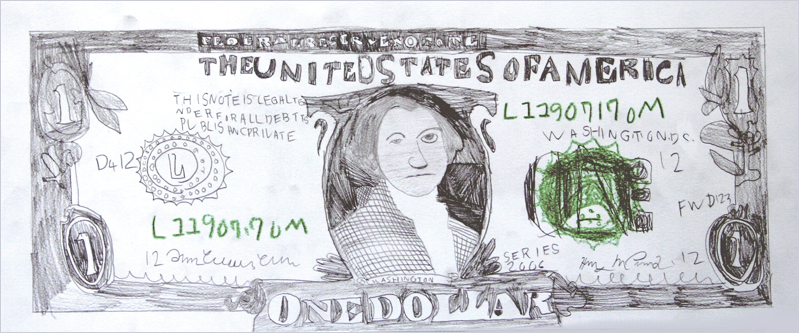 FEDERAL RESERVE NOTE
THE UNITED STATES OF AMERICA
1
1
THIS NOTE IS LEGAL TE
NDER FOR ALL DEBTS
PUBLIS ANC PRIVATE
L11907170M
WASHINGTON, D.C.
D4 12
L
12
FW D123
L11907170M
12
SERIES
2006
12
1
1
WASHINGTON
ONE DOLLAR